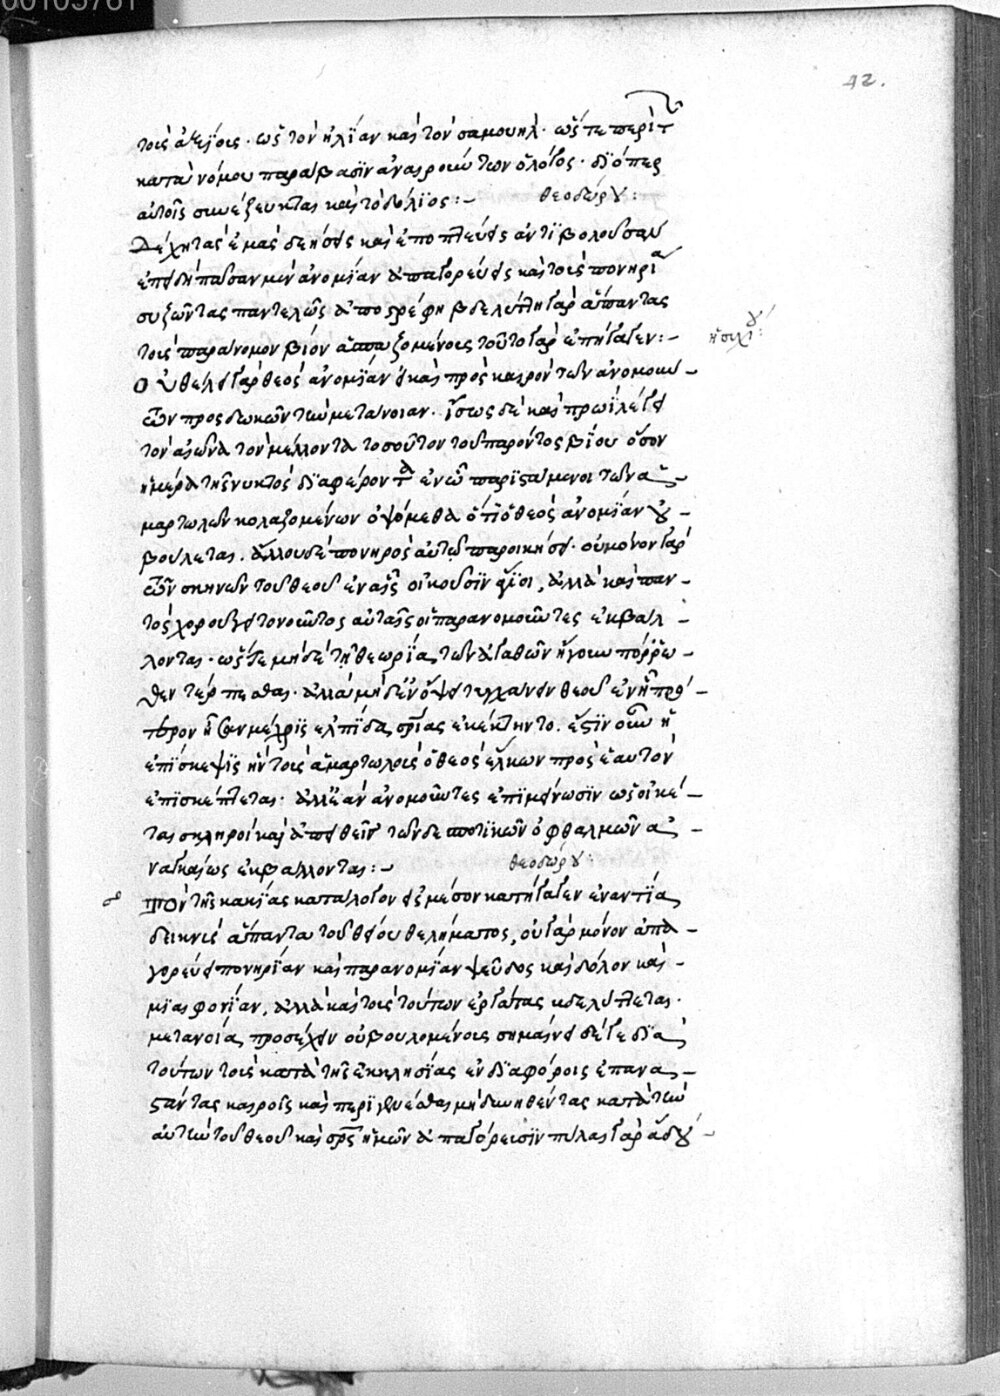 42.
τοῖς ἀξίοις· ὡς τὸν ἠλίαν καὶ τὸν σαμουήλ· ὥστε περὶ τ
κατὰ νόμου παράβασιν ἀναιροῦν των ὁ λόγος· διόπερ
αὐτοῖς συνέζευκται καὶ τὸ δόλιος:– θεοδώρου:
ἐπειδὴ πᾶσαν μὲν ἀνομίαν ἀπαγορεύει καὶ τοῖς πονηρία
συζῶντας παντελῶς ἀποστρέφη βδελύττη γὰρ ἅπαντας
τοῖς παράνομον βίον ἀσπαζομένοις τοῦτο γὰρ ἐπήγαγεν:– ἡσυχίου:
Οὐ θέλει γὰρ θεὸς ἀνομίαν εἰ καὶ πρὸς καιρὸν τῶν ἀνομούν
των προσδοκῶν τὴν μετάνοιαν· ἴσως δὲ καὶ πρωῒ λέγει
τὸν αἰῶνα τὸν μέλλοντα τοσοῦτον τοῦ παρόντος βίου ὅσον
ἡμέρα τῆς νυκτὸς διαφέροντα ἐν ὧ παριστάμενοι τῶν ἁ–
μαρτωλῶν κολαζομένων ὀψόμεθα ὅτι ὁ θεὸς ἀνομίαν οὐ–
βούλεται. ἀλλ' οὐδὲ πονηρὸς αὐτῶ παροικήσει· οὐ μόνον γὰρ
τῶν σκηνῶν τοῦ θεοῦ ἐν αἷς οἰκοῦσιν ἅγιοι, ἀλλὰ καὶ παν–
τὸς χοροῦ γειτονοῦντος αὐταῖς οἱ παρανομοῦντες ἐκβάλ–
λονται· ὥστε μηδὲ τῇ θεωρίᾳ τῶν ἀγαθῶν ἤγουν πόρρω–
θεν τέρπεσθαι· ἀλλὰ μηδὲ ὄψει τυγχάνειν θεοῦ ἐν ἧ πρό–
τερον ἧσαν μέχρις ἐλπίδα σωτηρίας ἐκέκτηντο. ἔστιν οὖν ἡ
ἐπίσκεψις ἣν τοῖς ἁμαρτωλοῖς ὁ θεὸς ἕλκων πρὸς ἑαυτὸν
ἐπισκέπτεται· ἀλλ' ἐὰν ἀνομοῦντες ἐπιμείνωσιν ὡς οἰκέ–
ται σκληροὶ καὶ ἀπειθεῖς τῶν δεσποτικῶν ὀφθαλμῶν ἀ–
ναγκαίως ἐκβάλλονται:– θεοδώρου:
Τὸν τῆς κακίας κατάλογον εἰς μέσον κατήγαγεν ἐναντία
δεικνὺς ἅπαντα τοῦ θείου θελήματος, οὐ γὰρ μόνον ἀπα–
γορεύει πονηρίαν καὶ παρανομίαν ψεῦδος καὶ δόλον καὶ–
μιαιφονίαν, ἀλλὰ καὶ τοὺς τούτων ἐργάτας βδελύττεται·
μετανοίᾳ προσέχειν οὐ βουλομένοις σημαίνει δέ γε διὰ
τούτων τοὺς κατὰ τῆς ἐκκλησίας ἐν διαφόροις ἐπανα–
στάντας καιροῖς καὶ περιγενέσθαι μὴ δυνηθέντας κατὰ τὴν
αὐτὴν τοῦ θεοῦ καὶ σωτῆρος ἡμῶν ἀπαγόρευσιν πύλαι γὰρ ἅδου–